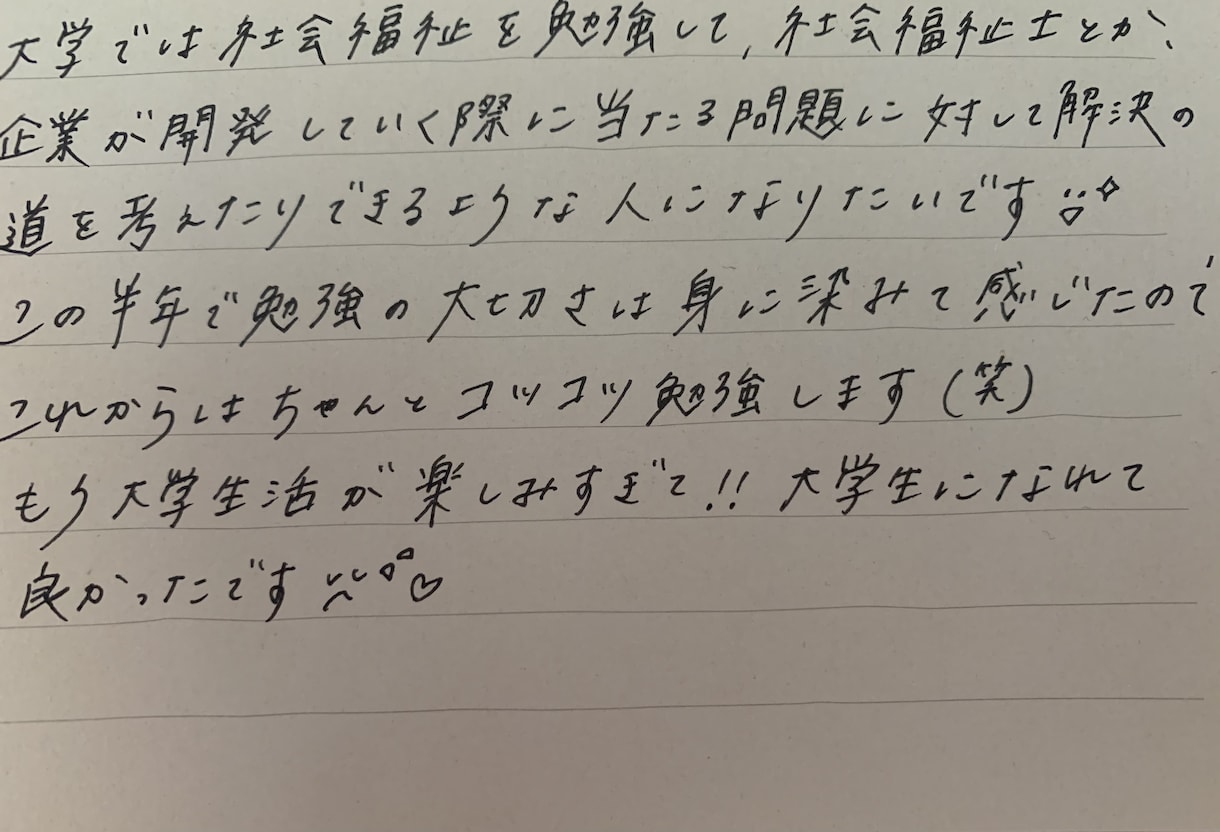 大学では社会福祉を勉強して、社会福祉士とか、
企業が開発していく際に当たる問題に対して解決の
道を考えたりできるような人になりたいです
この半年で勉強の大切さは身に染みて感じたので
これからはちゃんとコツコツ勉強します(笑)
もう大学生活が楽しみすぎて!! 大学生になれて
良かったです ♡